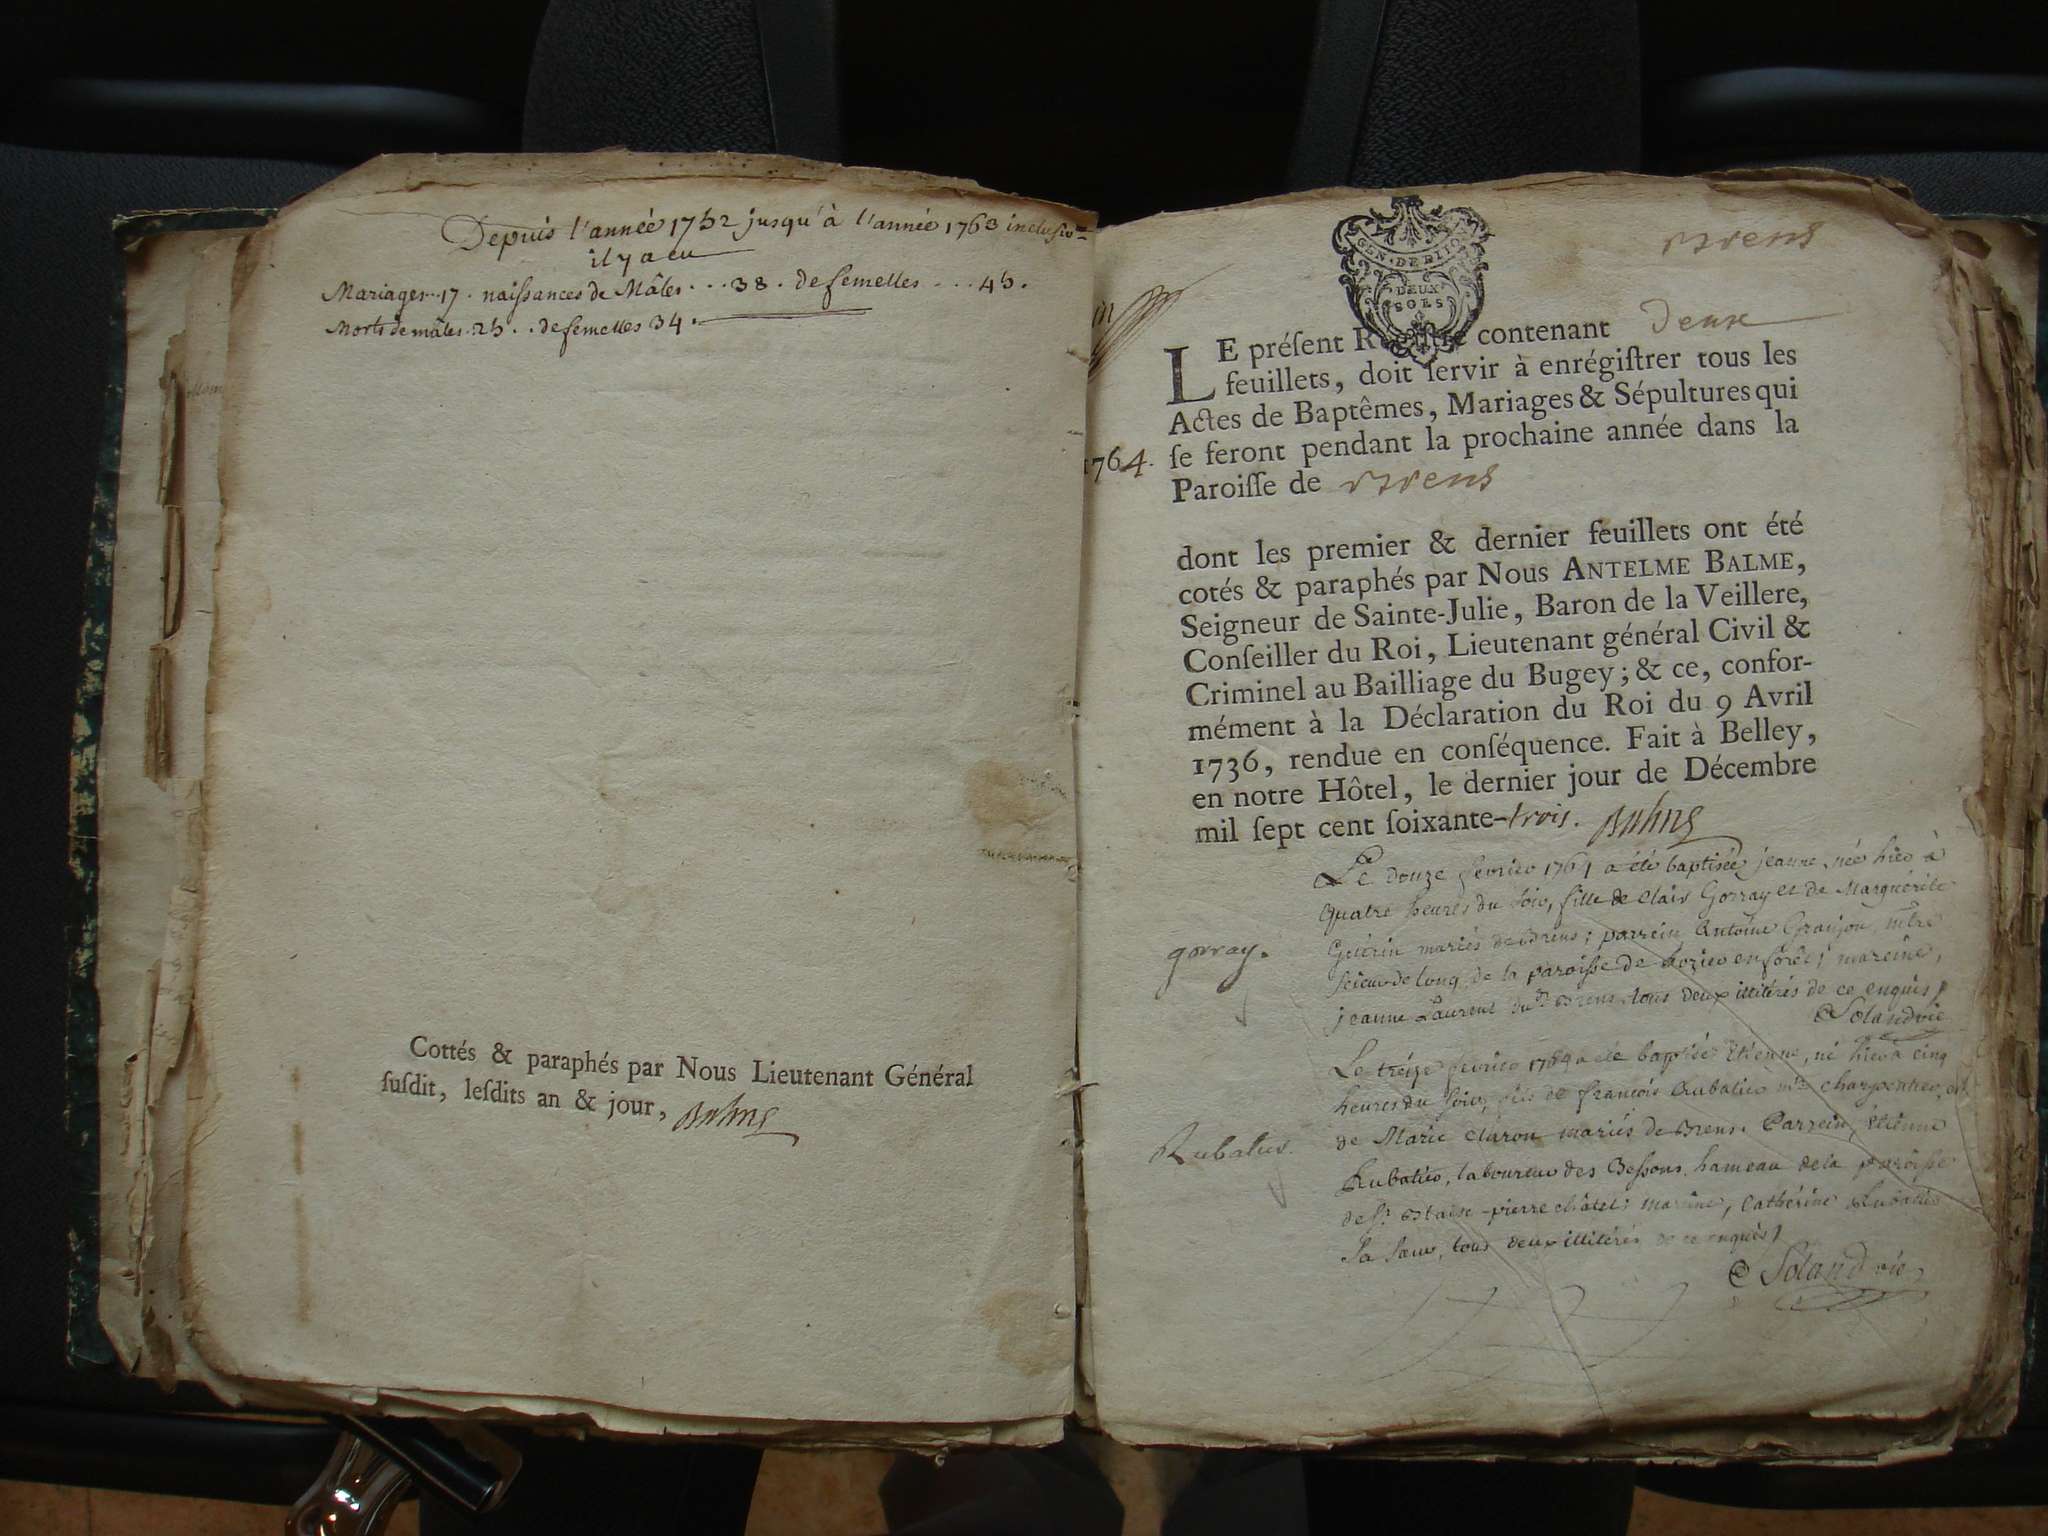 Depuis l'année 1752 jusqu'à l'année 1763 inclusiv.
il y a eu
Mariages..17. naissances de Mâles...38. de femelles...45.
Morts de mâles.25..de femelles 34.
Cottés & paraphés par Nous Lieutenant Général
ſuſdit, leſdits an & jour, Balme
Brens
GEN. DE DIJON
DEUX
SOLS
LE préſent Regiſtre contenant Deux
feuillets, doit ſervir à enrégiſtrer tous les
Actes de Baptêmes, Mariages & Sépultures qui
1764. ſe feront pendant la prochaine année dans la
Paroiſſe de Brens
dont les premier & dernier feuillets ont été
cotés & paraphés par Nous ANTELME BALME,
Seigneur de Sainte-Julie, Baron de la Veillere,
Conſeiller du Roi, Lieutenant général Civil &
Criminel au Bailliage du Bugey; & ce, confor-
mément à la Déclaration du Roi du 9 Avril
1736, rendue en conſéquence. Fait à Belley,
en notre Hôtel, le dernier jour de Décembre
mil ſept cent ſoixante-trois. Balme
Le douze fevrier 1764 a été baptisée jeanne née hier à
quatre heures du soir, fille de Clair Gorray et de Marguérite
gorray. Guérin mariés de Brens; parrein Antoine Granjon, mtre
scieur de long, de la paroisse de en forêt; mareine,
jeanne Laurent dud. Brens, tous deux illitérés de ce enquis
Soland vic
Le treize fevrier 1764 a été baptisé Etienne, né hier à cinq
heures du soir, fils de françois Rubatier me charpentier, et
Rubatier. de Marie Claron mariés de Brens. Parrein, étienne
Rubatier, laboureur des Bessons hameau de la paroisse
de St. Blaise-pierre châtel; mareine, Catherine Rubatier
sa sœur, tous deux illitérés de ce enquis
Soland vic